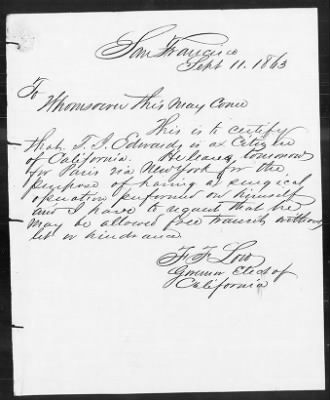 San Francisco
Sept 11. 1863
To
Whomsoever this May Come
This is to certify
that T. J. Edwards is a Citizen
of California. He leaves tomorrow
for Paris via New York for the
purpose of having a surgical
operation performed on himself
and I have to request that he
may be allowed free transit without
let or hindrance
F F Low
Governor Elect of
California